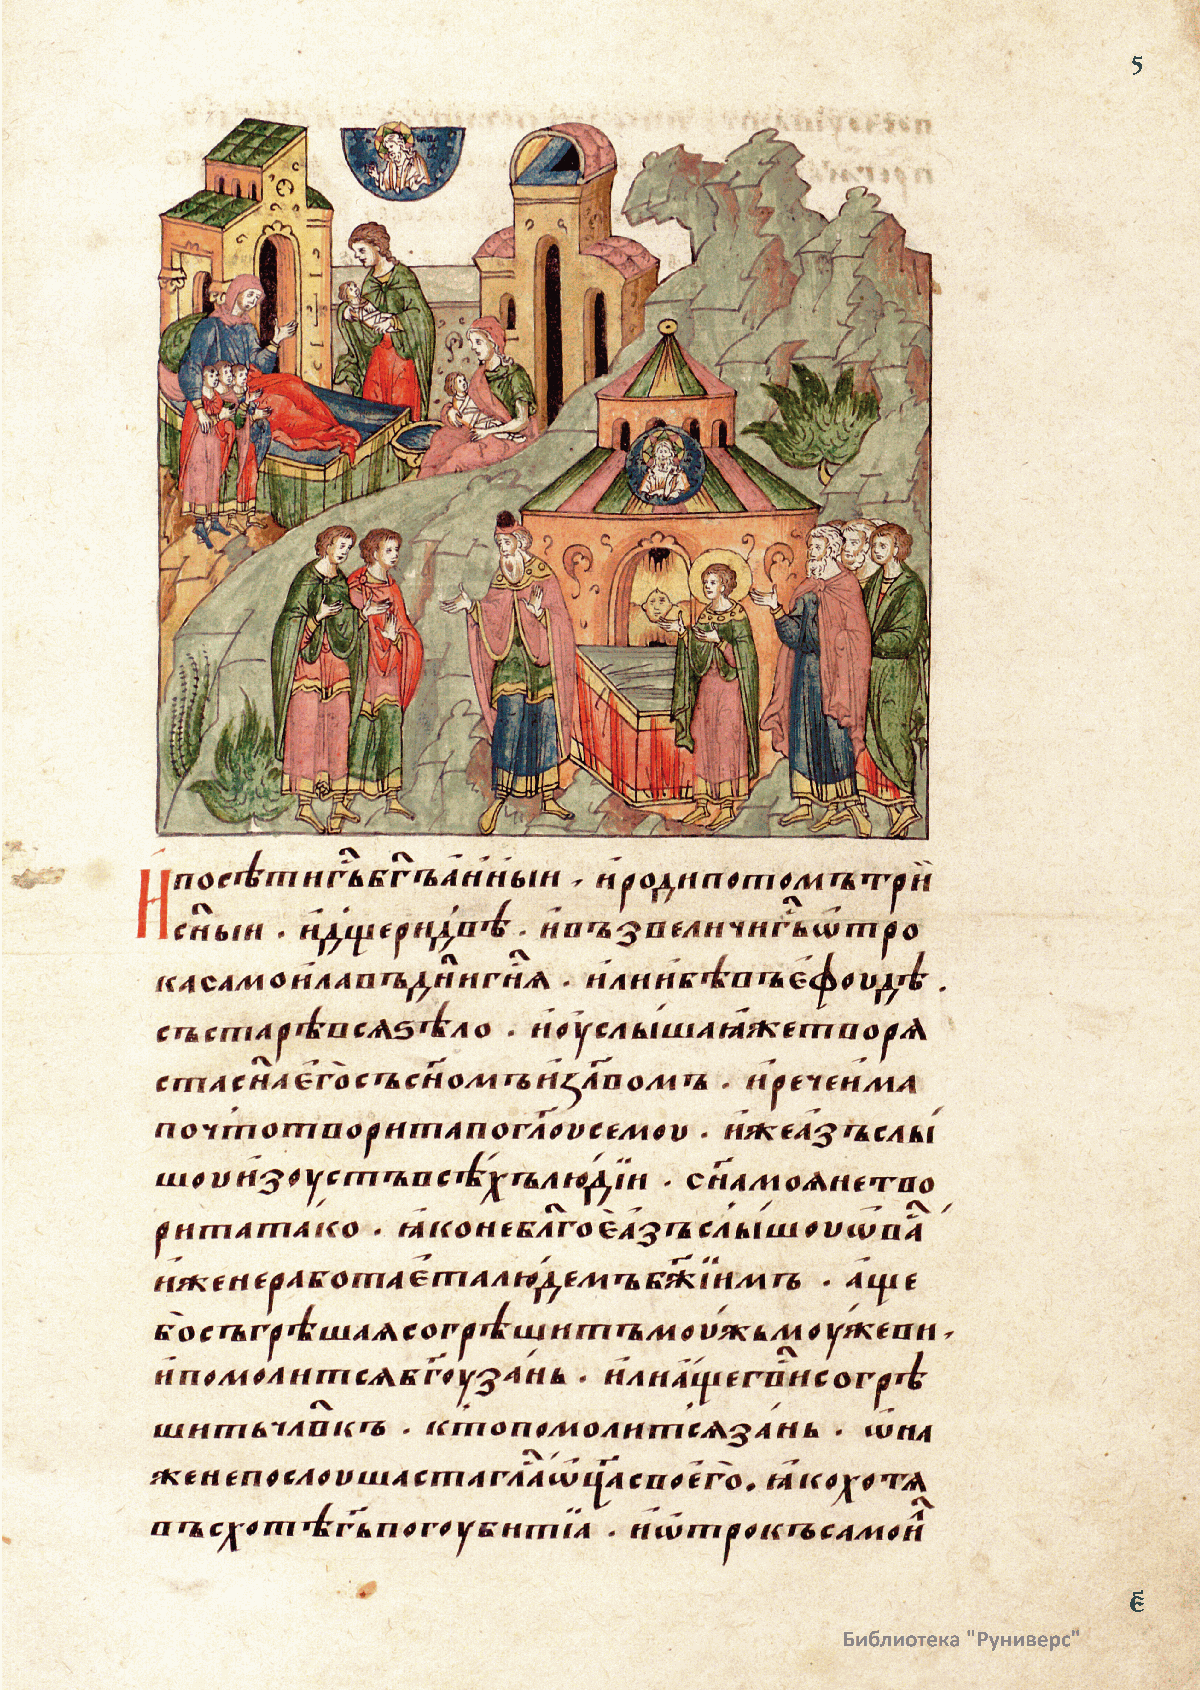 5
И посѣти гь҃ бг҃ъ а́нныи , и҆ роди потомъ три
сн҃ыи . и҆ дщери двѣ . и҆ възвеличи гь҃ ѿтро
ка самоила въ дн҃и гн҃ѧ . и҆лии бѣ въ є҆фоудѣ .
състарѣвсѧ ѕѣло . и҆ оуслыша ꙗ҆же творѧ
ста сн҃а є҆го съ сн҃омъ и҆зл҃вомъ . и҆ рече и҆ма
почто творита по гл҃оу семоу . и҆же а҆зъ слы
шоу и҆зоустъ всѣхъ людїи . сн҃а моѧ не тво
рита тако . ꙗ҆ко не бл҃го є҆ а҆зъ слышоу ѿ ва҃
и҆же не работаєта людемъ бж҃їимъ . а҆ще
бо съгрѣшаѧ согрѣшитъ моужь моужеви ,
и҆ помолитсѧ бг҃оу за нь . и҆ли а҆ще гв҃и согрѣ
шить чл҃вкъ . кто помолитсѧ за нь . ѡ҆на
же не послоушаста гл҃а ѿц҃а своєго . ꙗ҆ко хотѧ
въсхотѣ гь҃ погоубити ꙗ . и҆ ѿтрокъ самои҃
є҃
Библиотека "Руниверс"